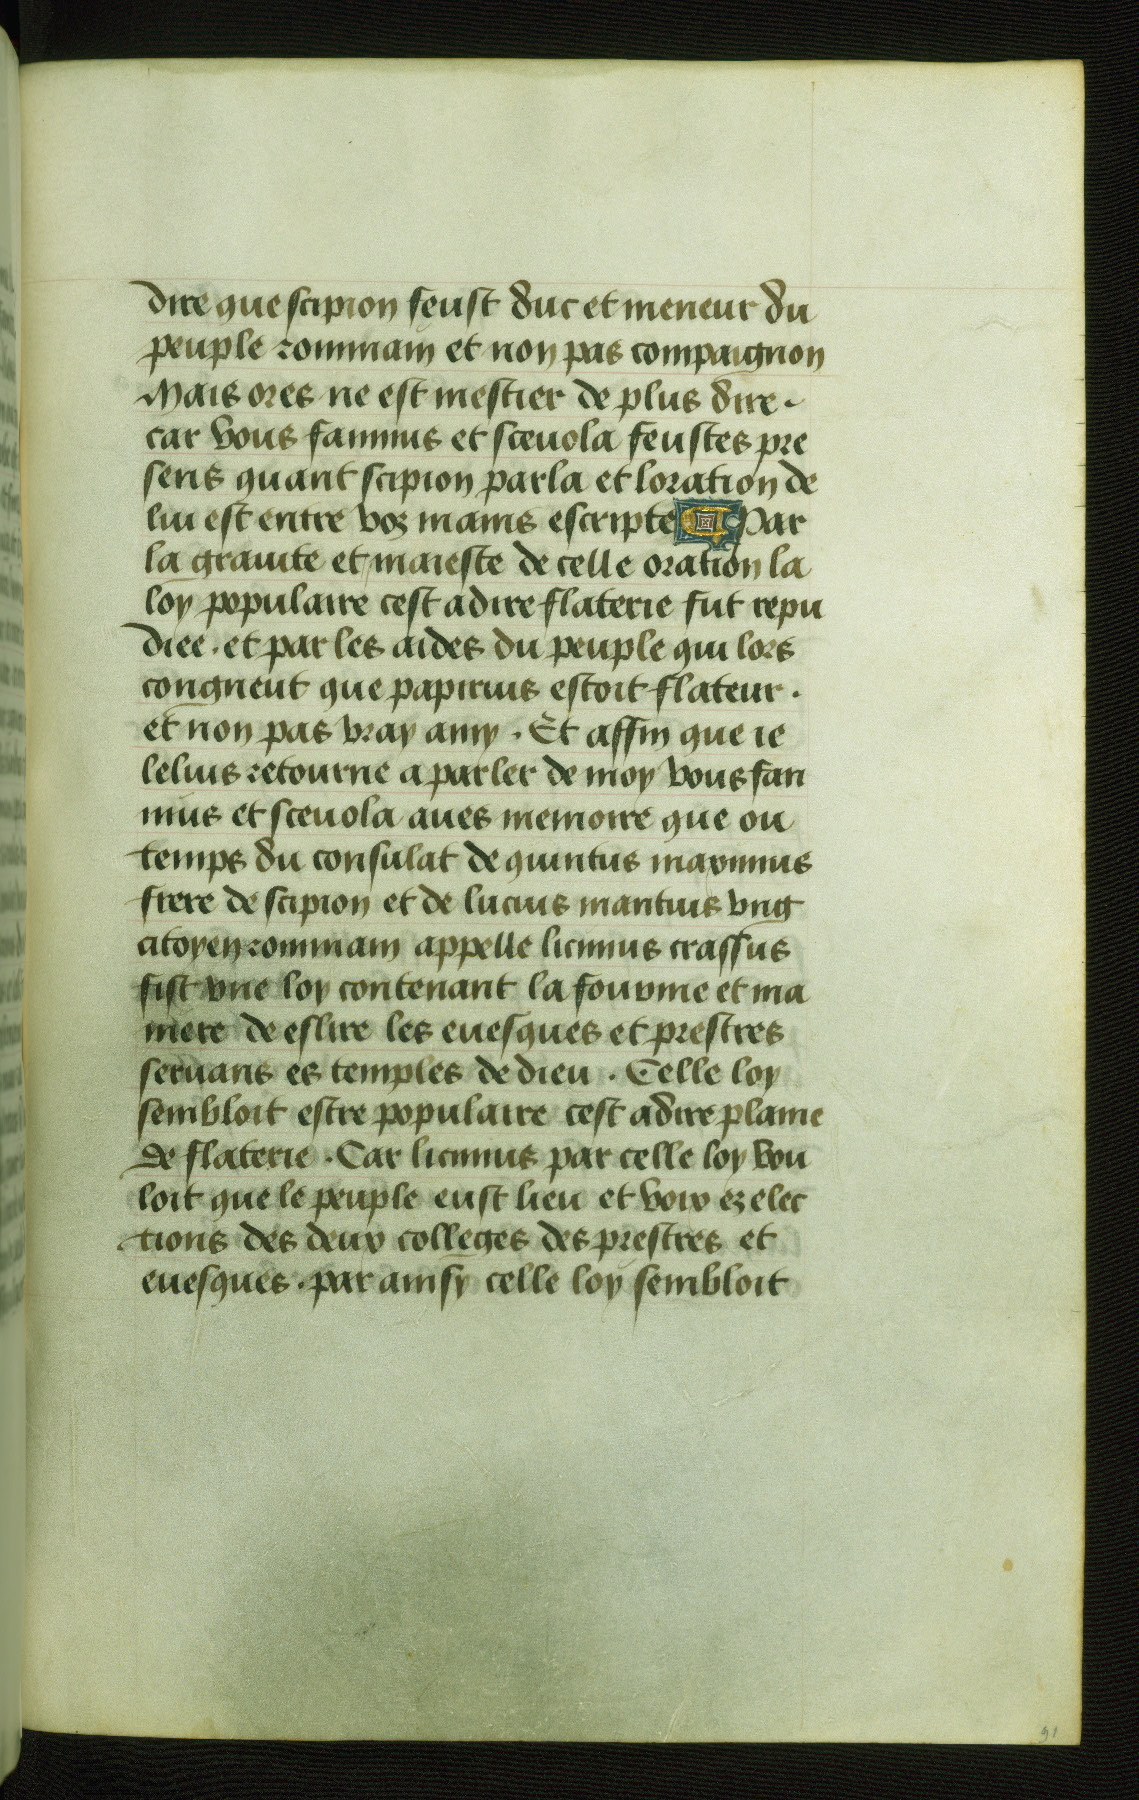 dire que scipion feust duc et meneur du
peuple rommain et non pas compaignon
Mais ores ne est mestier de plus dire .
car vous fannius et sceuola feustes pre
sens quant scipion parla et loration de
lui est entre voz mains escripte ¶ Par
la grauite et maieste de celle oration la
loy populaire cest adire flaterie fut repu
diee . et par les aides du peuple qui lors
congneut que papirius estoit flateur .
et non pas vray amy . Et affin que ie
lelius retourne a parler de moy vous fan
nius et sceuola aues memoire que ou
temps du consulat de quintus maximus
frere de scipion et de lucius mantius vng
citoyen rommain appelle licinius crassus
fist vne loy contenant la fourme et ma
niere de eslire les euesques et prestres
seruans es temples de dieu . Celle loy
sembloit estre populaire cest adire plaine
de flaterie . Car licinius par celle loy vou
loit que le peuple eust lieu et voix ez elec
tions des deux colleges des prestres et
euesques . par ainsy celle loy sembloit
91